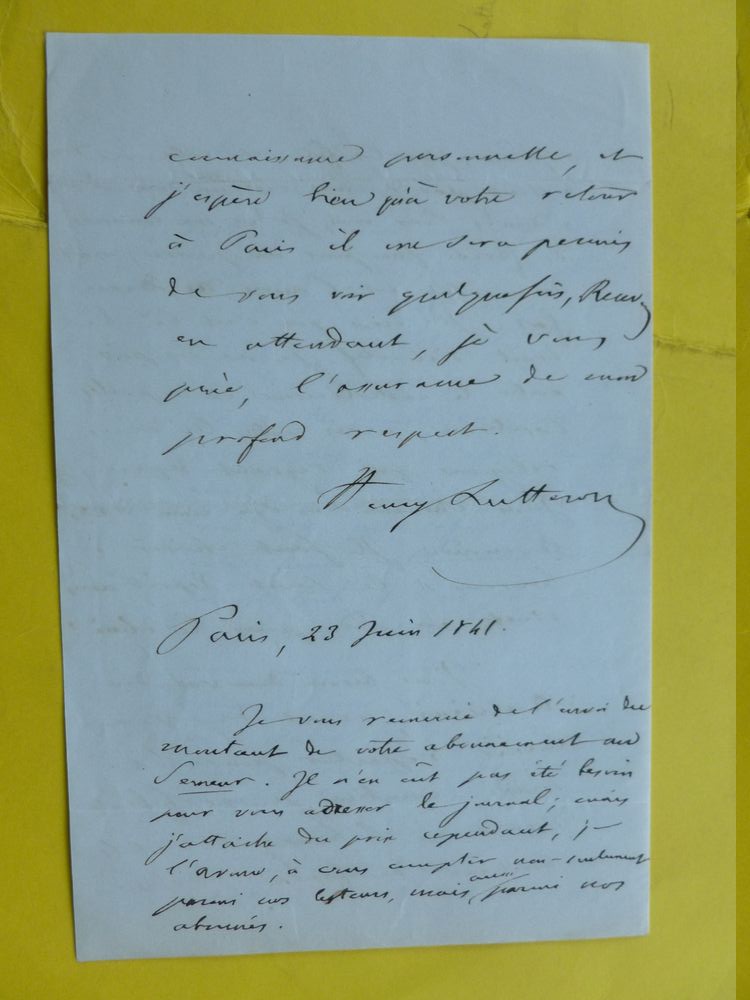 connaissance personnelle, et
j'espère bien qu'à votre retour
à Paris il me sera permis
de vous voir quelquefois. Recevez
en attendant, je vous
prie, l'assurance de mon
profond respect.
Henry Lutteroth
Paris, 23 Juin 1841.
Je vous remercie de l'envoi du
montant de votre abonnement au
Semeur. Il n'en eût pas été besoin
pour vous adresser le journal; mais
j'attache du prix cependant, je
l'avoue, à vous compter non-seulement
parmi nos lecteurs, mais aussi parmi nos
abonnés.